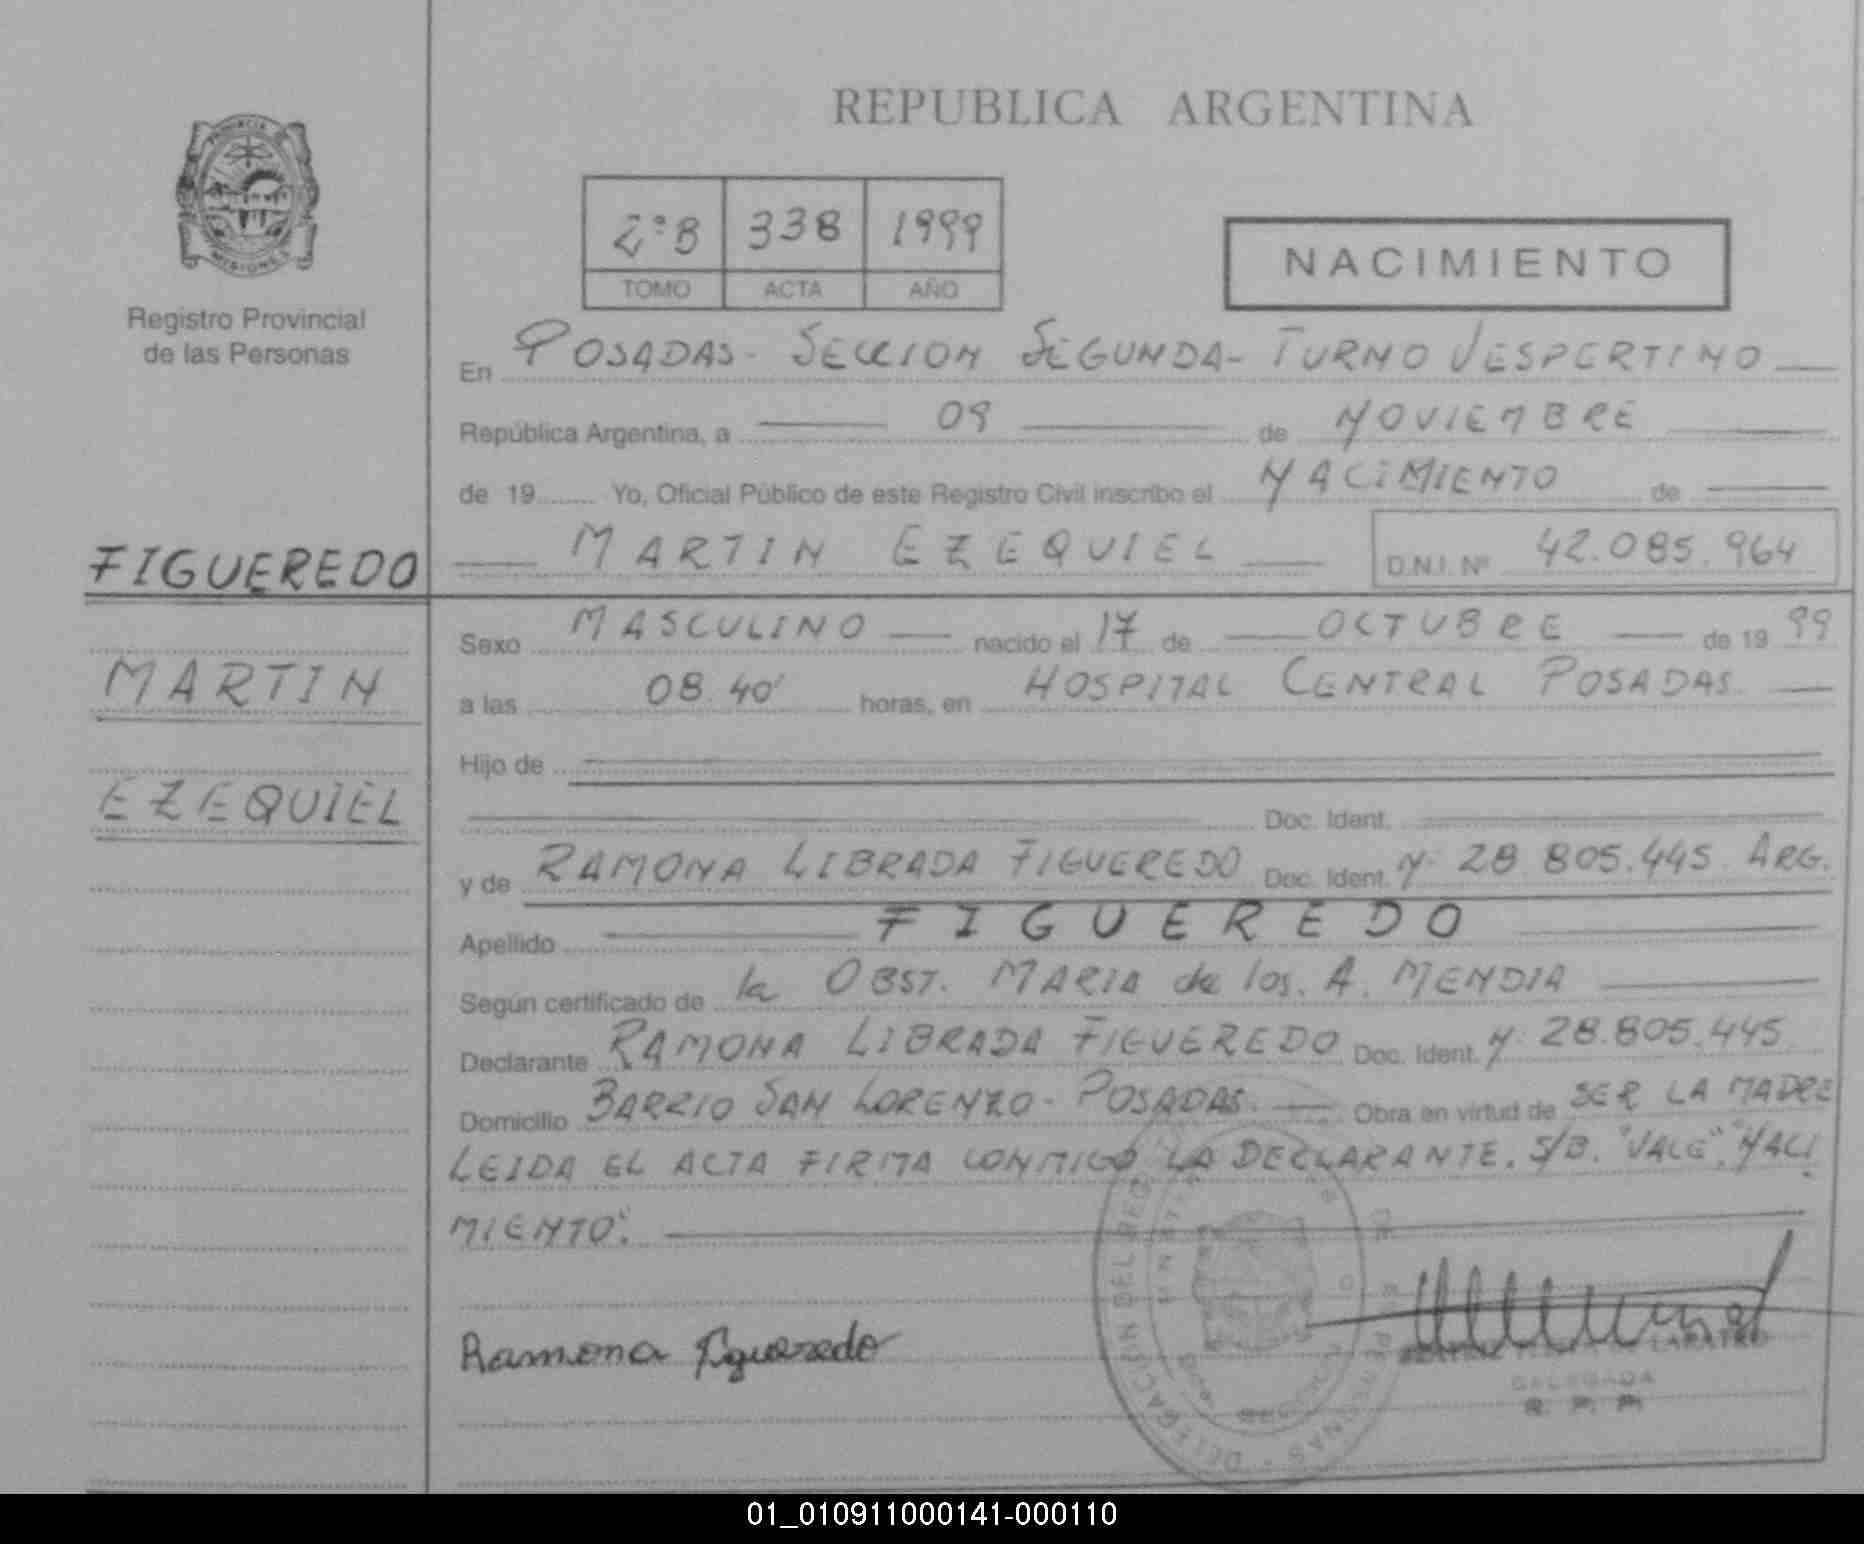 REPUBLICA ARGENTINA
PROVINCIA DE
MISIONES
Registro Provincial
de las Personas
2ºB 338 1999
TOMO ACTA AÑO
NACIMIENTO
En POSADAS - SECCION SEGUNDA - TURNO VESPERTINO
República Argentina, a 09 de NOVIEMBRE
de 19 Yo, Oficial Público de este Registro Civil inscribo el NACIMIENTO de
MARTIN EZEQUIEL D.N.I. Nº 42.085.964
FIGUEREDO
MARTIN
EZEQUIEL
Sexo MASCULINO nacido el 17 de OCTUBRE de 19 99
a las 08.40' horas, en HOSPITAL CENTRAL POSADAS.
Hijo de
Doc. Ident.
y de RAMONA LIBRADA FIGUEREDO Doc. Ident. Nº 28.805.445 ARG.
Apellido FIGUEREDO
Según certificado de la OBST. MARIA de los A. MENDIA
Declarante RAMONA LIBRADA FIGUEREDO Doc. Ident. Nº 28.805.445
Domicilio BARRIO SAN LORENZO - POSADAS. Obra en virtud de SER LA MADRE
LEIDA EL ACTA FIRMA CONMIGO LA DECLARANTE. S/B. "VALE". "NACI
MIENTO".
Ramona Figueredo
DELEGACION DEL REG
DE LAS PERSONAS
DELEGADA
R. P. P.
01_010911000141-000110